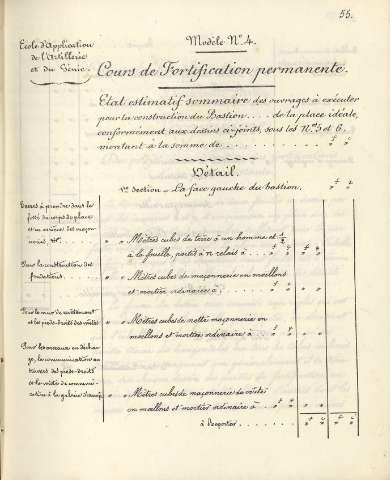 55.
Ecole d'Application
de l'Artillerie
et du Génie.
Modèle N.° 4.
Cours de Fortification permanente.
Etat estimatif sommaire des ouvrages à exécuter
pour la construction du Bastion .... de la place idéale,
conformément aux dessins ci-joints, sous les N.os 5 et 6,
montant à la somme de
Détail.
1re Section - La face gauche du bastion.
Terres à prendre dans le
fossé du corps de place
et en arrière des maçon
neries, &c.
" " Mètres cubes de terre à un homme et
à la fouille, portés à n relais à
Pour la construction des
fondations.
" " Mètres cubes de maçonnerie en moellons
et mortier ordinaire à
Pour le mur de revêtement
et les pieds-droits des voûtes
" " Mètres cubes de maçonnerie en
moellons et mortier ordinaire à
Pour les arceaux en déchar
ge, les communications au
travers des pieds-droits
et la voûte de communi-
cation à la galerie
" " Mètres cubes de maçonnerie de voûtes
en moellons et mortier ordinaire à
à reporter